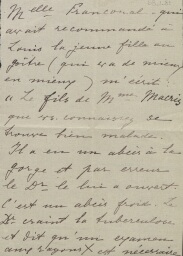 Melle Franconal qui
avait recommandé à
Louis la jeune fille au
goître (qui va de mieux
en mieux) m'écrit :
« Le fils de Mme
que vs connaissez se
trouve bien malade.
Il a en un abcès à la
gorge et par erreur
le Dr le lui a ouvert.
C'est un abcès froid. Le
Dr craint la tuberculose
et dit qu'un examen
aux rayons X est nécessaire